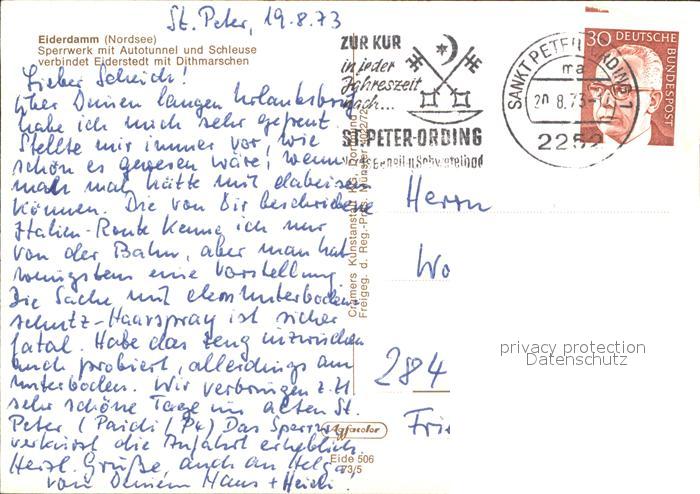 St. Peter, 19.8.73
Eiderdamm (Nordsee)
Sperrwerk mit Autotunnel und Schleuse
verbindet Eiderstedt mit Dithmarschen
Lieber Scheich!
Über Deinen langen Urlaubsbrief
habe ich mich sehr gefreut.
Stellte mir immer vor, wie
schön es gewesen wäre, wenn
man mal hätte mit dabeisein
können. Die von Dir beschriebene
Italien-Route kenne ich nur
von der Bahn, aber man hat
wenigstens eine Vorstellung.
Die Sache mit dem Unterboden-
schutz-Haarspray ist sicher
fatal. Habe das Zeug inzwischen
auch probiert, allerdings am
Unterboden. Wir verbringen z. Zt.
sehr schöne Tage im alten St.
Peter (Paidi / P4) Das Sperrwerk
verkürzt die Anfahrt erheblich.
Herzl. Grüße, auch an Helga,
von Deinem Hans + Heidi
Cramers Kunstanstalt KG, Dortmund
Freigeg. d. Reg.-Präs. Münster
Agfacolor
Eide 506
73/5
ZUR KUR
in jeder
Jahreszeit
nach...
ST. PETER-ORDING
SANKT PETER-ORDING 1
ma
20.8.73
2252
30 DEUTSCHE
BUNDESPOST
Herrn
Wo
284
Frie
privacy protection
Datenschutz